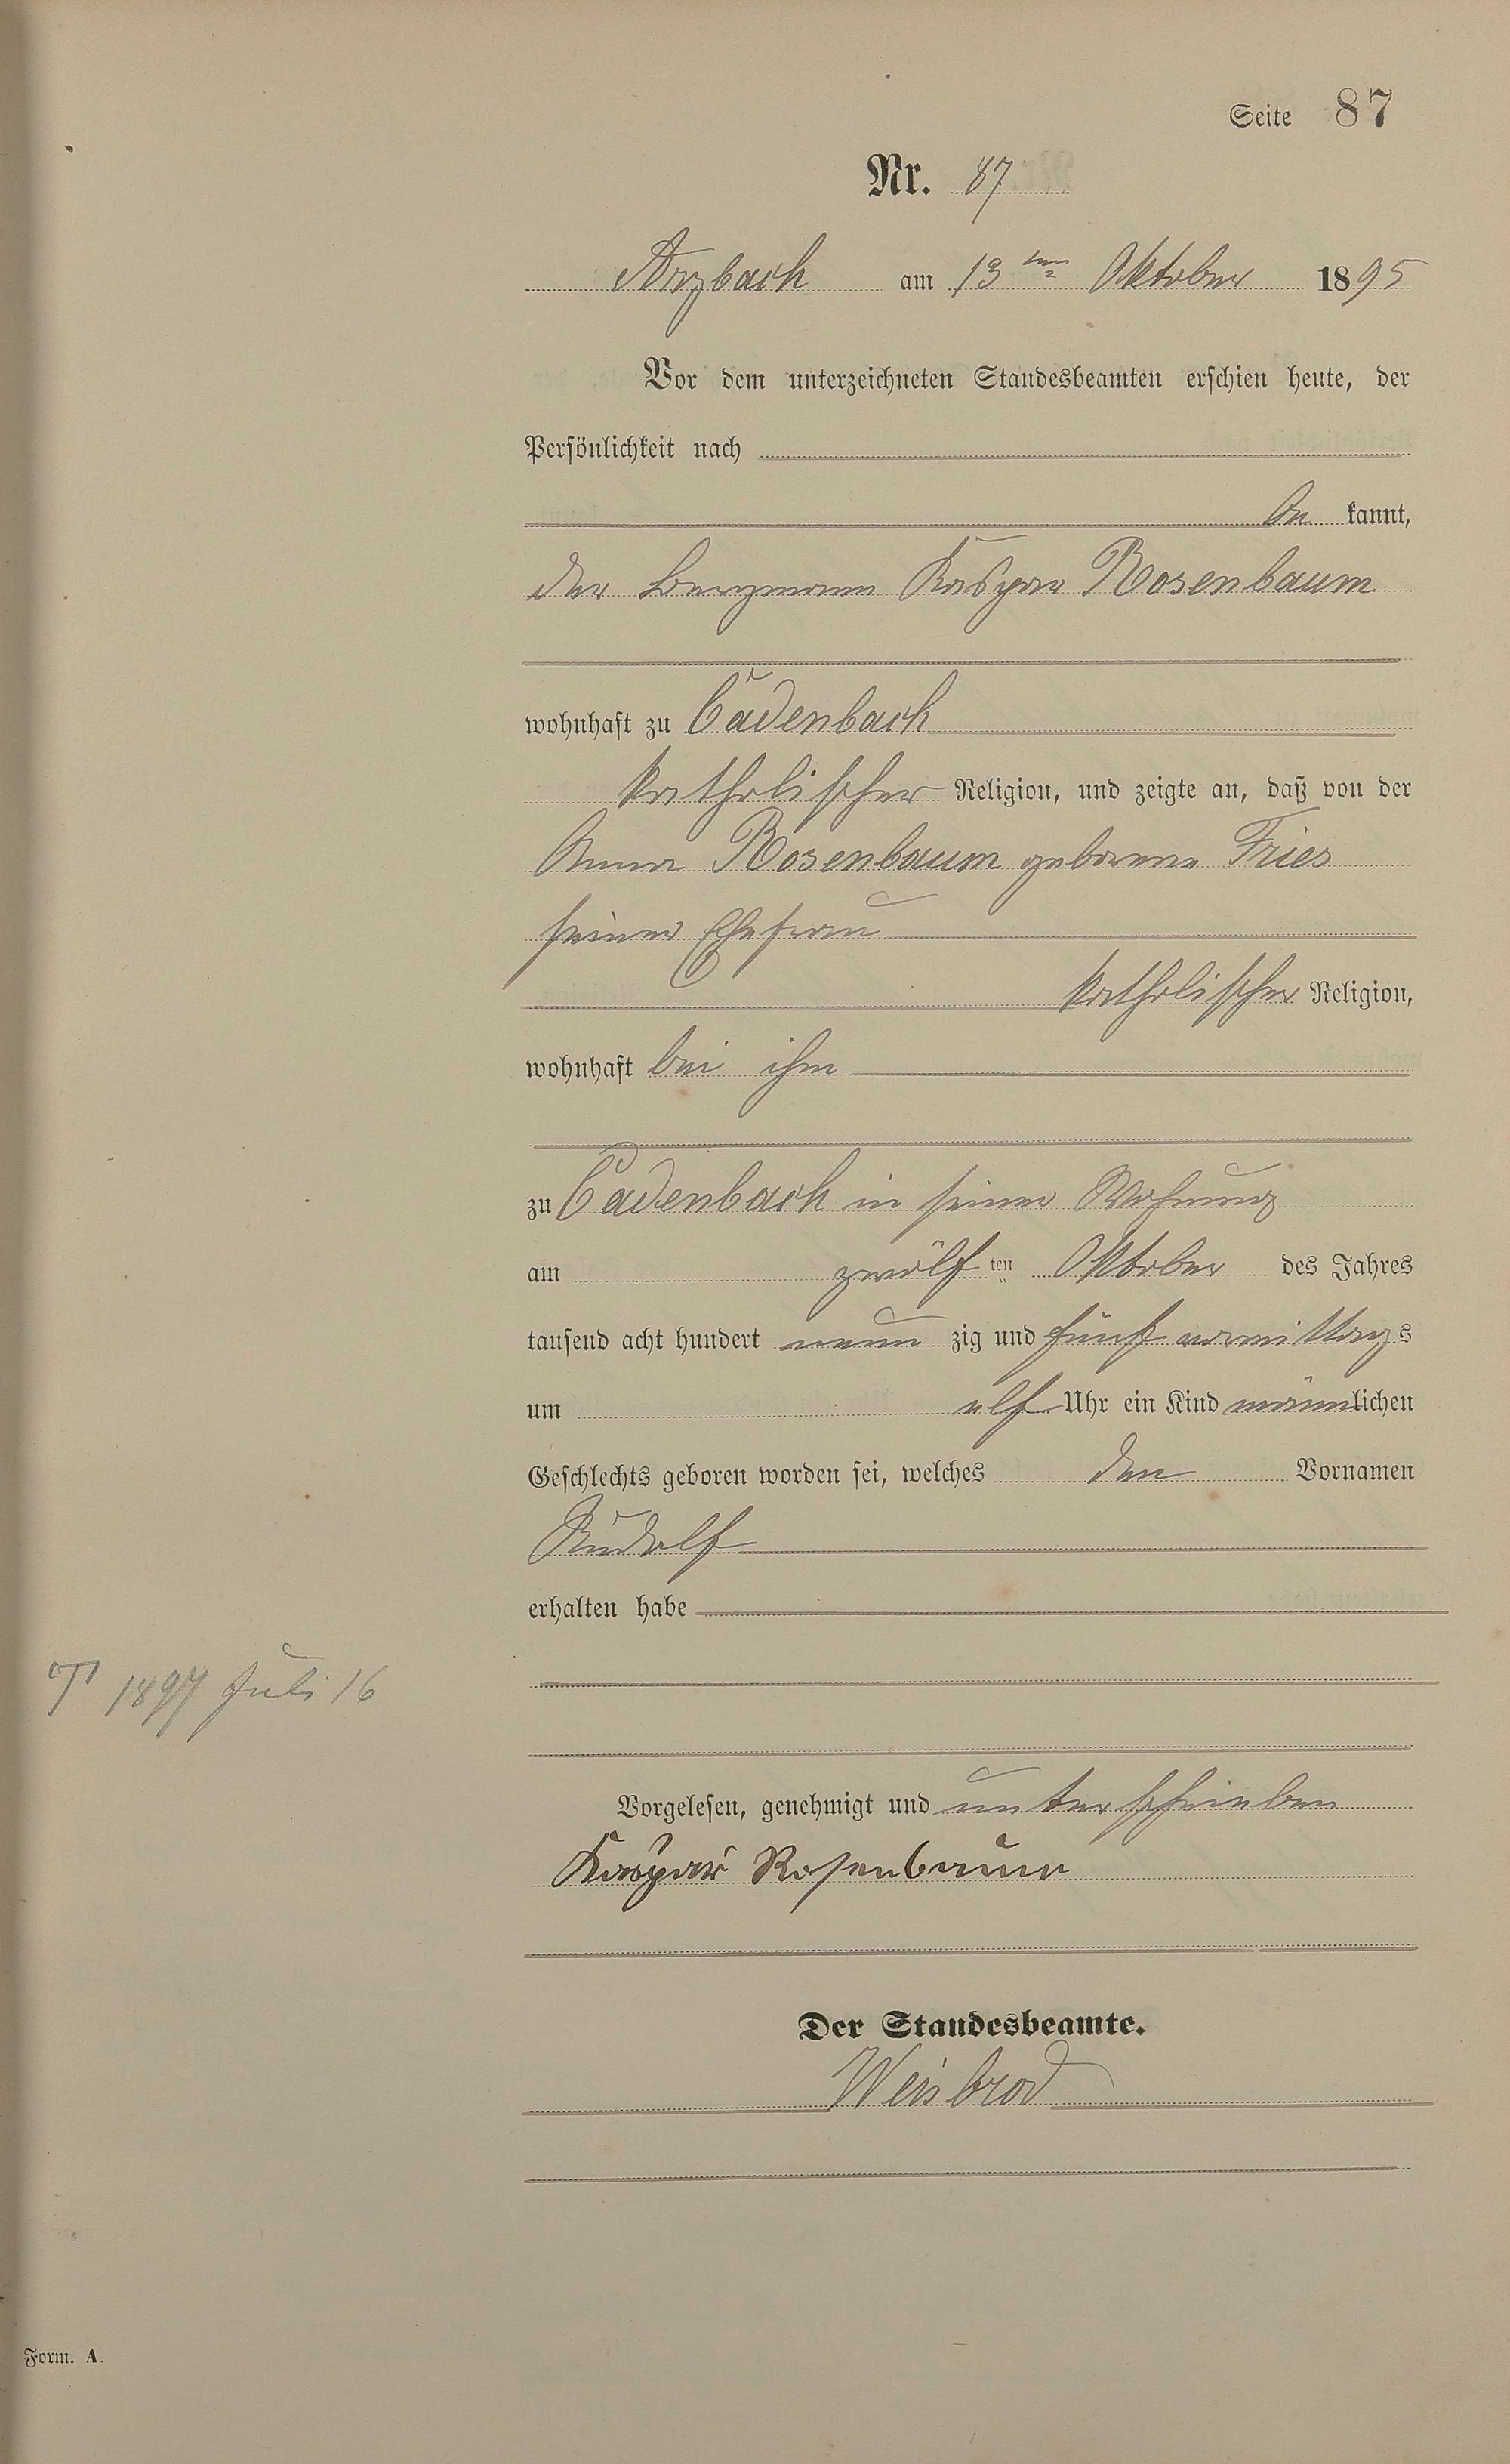 Seite 87
Nr. 87
Arzbach am 13ten Oktober 1895
Vor dem unterzeichneten Standesbeamten erschien heute, der
Persönlichkeit nach
be kannt,
der Bergmann Kaspar Rosenbaum
wohnhaft zu Cadenbach
katholischer Religion, und zeigte an, daß von der
Anna Rosenbaum geborene Fries
seiner Ehefrau
katholischer Religion,
wohnhaft bei ihm
zu Cadenbach in seiner Wohnung
am zwölf ten Oktober des Jahres
tausend acht hundert neun zig und fünf vormittags
um elf Uhr ein Kind männlichen
Geschlechts geboren worden sei, welches den Vornamen
Rudolf
erhalten habe
1897 Juli 16
Vorgelesen, genehmigt und unterschrieben
Kaspar Rosenbaum
Der Standesbeamte.
Weisbrod
Form. A.